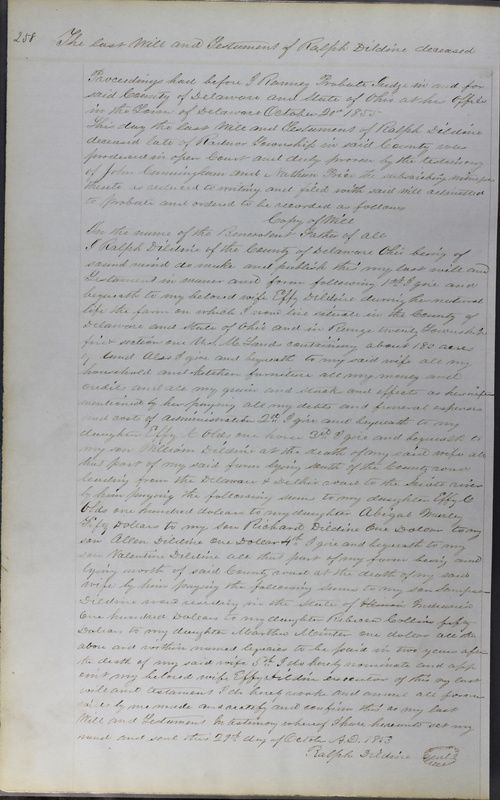 258
The last Will and Testament of Ralph Dildine deceased
Proceedings had before J Ranney Probate Judge in and for
said County of Delaware and State of Ohio at his Office
in the Town of Delaware October 20th 1855
This day the last Will and Testament of Ralph Dildine
deceased late of Radnor Township in said County was
produced in open Court and duly proven by the testimony
of John Cunningham and Nathan Price the subscribing witnesses
thereto as reduced to writing and filed with said Will admitted
to probate and ordered to be recorded as follows
Copy of Will
In the name of the Benevolent Father of all
I Ralph Dildine of the County of Delaware Ohio being of
sound mind do make and publish this my last will and
Testament in manner and form following 1st I give and
bequeath to my beloved wife Effy Dildine during her natural
life the farm on which I now live situate in the County of
Delaware and State of Ohio and in Range twenty Township
five section one U.S.M. Land containing about 180 acres
of land Also I give and bequeath to my said wife all my
household and kitchen furniture all my money and
credits and all my grain and stock and effects as hereafter
mentioned by her paying all my debts and funeral expenses
and cost of Administration 2d I give and bequeath to my
daughter Effy C Olds one horse 3d I give and bequeath to
my son William Dildine at the death of my said wife all
that part of my said farm lying south of the County road
leading from the Delaware & road to the Scioto river
by him paying the following sums to my daughter Effy C
Olds one hundred dollars to my daughter Abigal
Fifty Dollars to my son Richard Dildine One Dollar to my
son Allen Dildine One Dollar 4th I give and bequeath to my
son Valentine Dildine all that part of my farm being and
lying north of said County road at the death of my said
wife by him paying the following sums to my son
Dildine now residing in the State of
One hundred Dollars to my daughter Rebecca Collins fifty
Dollars to my daughter Martha one dollar all the
above and within named legacies to be paid in two years after
the death of my said wife 5th I do hereby nominate and app
oint my beloved wife Effy Dildine Executor of this my last
will and testament I do hereby revoke and annul all former
wills by me made and ratify and confirm this as my last
Will and Testament In testimony whereof I have hereunto set my
hand and seal this 29th day of October A.D. 1853
Ralph Dildine